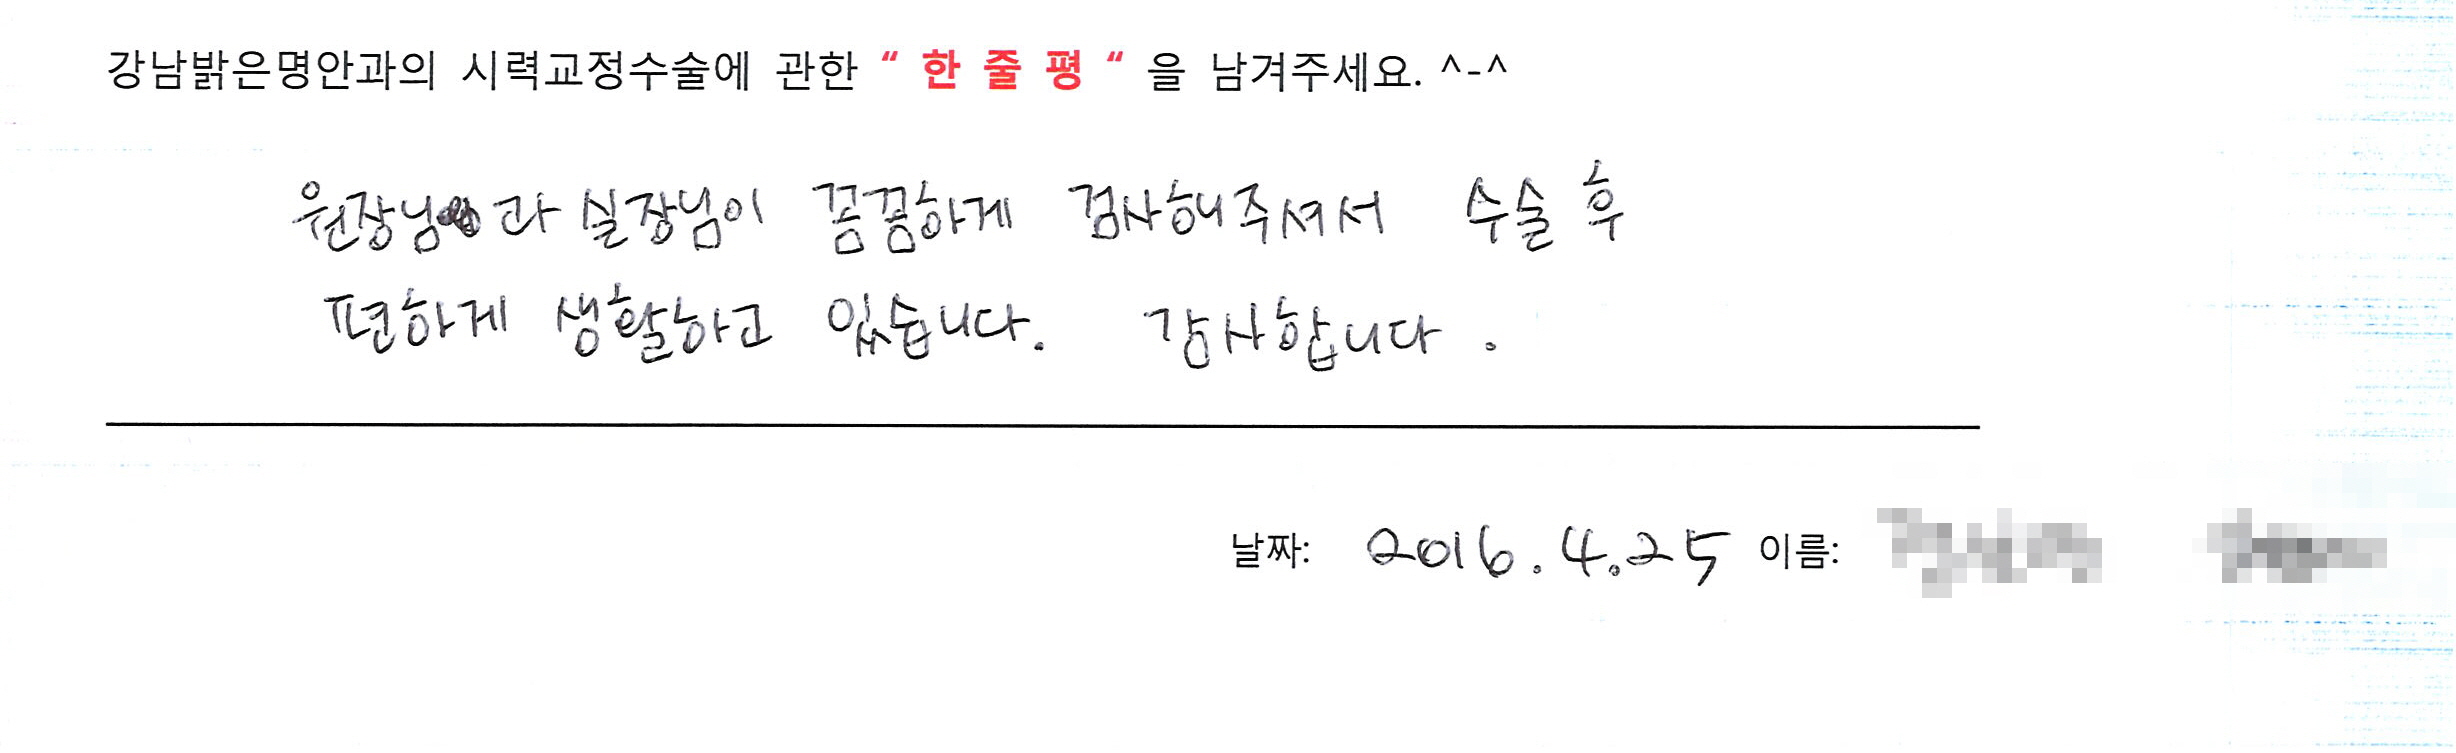 강남밝은명안과의 시력교정수술에 관한 “ 한 줄 평 “ 을 남겨주세요. ^-^
원장님과 실장님이 꼼꼼하게 검사해주셔서 수술 후
편하게 생활하고 있습니다. 감사합니다.
날짜: 2016.4.25 이름: